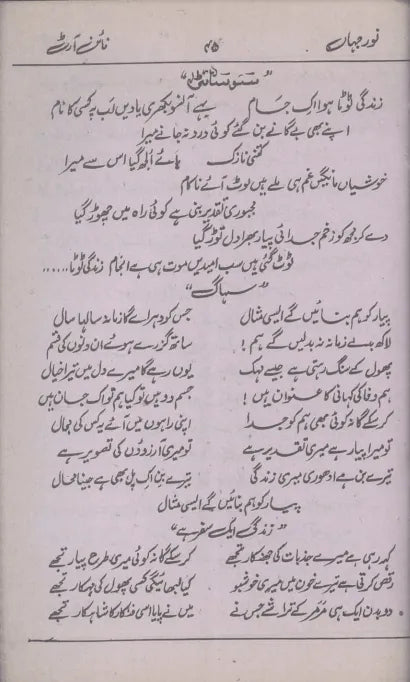 نور جہاں ۴۵ نائن آرٹ
زندگی ٹوٹا ہوا اک جام بہے آنسو بکھری یادیں لب پہ کسی کا نام
اپنے بھی بے گانے بن گئے کوئی درد نہ جانے میرا
کتنی نازک ہائے الجھ گیا اس سے میرا
خوشیاں مانگیں غم ہی ملے ہیں لوٹ آئے ناکام
مجبوری تقدیر بنی ہے کوئی راہ میں چھوڑ گیا
دے کر مجھ کو زخم جدائی پیار بھرا دل توڑ گیا
ٹوٹ گئی ہیں سب امیدیں موت ہی ہے انجام زندگی ٹوٹا......
"سہاگ"
پیار کو ہم بنائیں گے ایسی مثال جس کو دہرائے گا زمانہ سالہا سال
لاکھ بدلے زمانہ نہ بدلیں گے ہم! ساتھ گزرے ہوئے ان دنوں کی قسم
پھول کے سنگ رہتی ہے جیسے مہک یوں رہے گا میرے دل میں تیرا خیال
ہم وفا کی کہانی کا عنوان ہیں! جسم دو ہیں تو کیا ہم تو اک جان ہیں
کر سکے گا نہ کوئی بھی ہم کو جدا اپنی راہوں میں آئے یہ کس کی مجال
تو میرا پیار ہے میری تقدیر ہے تو میری آرزوؤں کی تصویر ہے
تیرے بن ہے ادھوری میری زندگی تیرے بنا اک پل بھی ہے جینا محال
پیار کو ہم بنائیں گے ایسی مثال
"زندگی ایک سفر ہے"
کہہ رہی ہے میرے جذبات کی جھنکار تجھے کر سکے گا نہ کوئی میری طرح پیار تجھے
رقص کرتی ہے تیرے خون میں میری خوشبو کیا لبھائے گی کسی پھول کی مہکار تجھے
دو بدن ایک ہی مرمر کے تراشے جس نے میں نے پایا اسی فنکار کا شاہکار تجھے